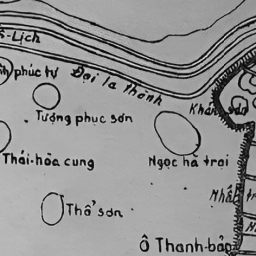 -Lịch
phúc tự
Đại la thành
Khán sơn
Tượng phục sơn
Thái-hòa cung
Ngọc hà trại
Nhất
Thổ sơn
Ô Thanh-bảo